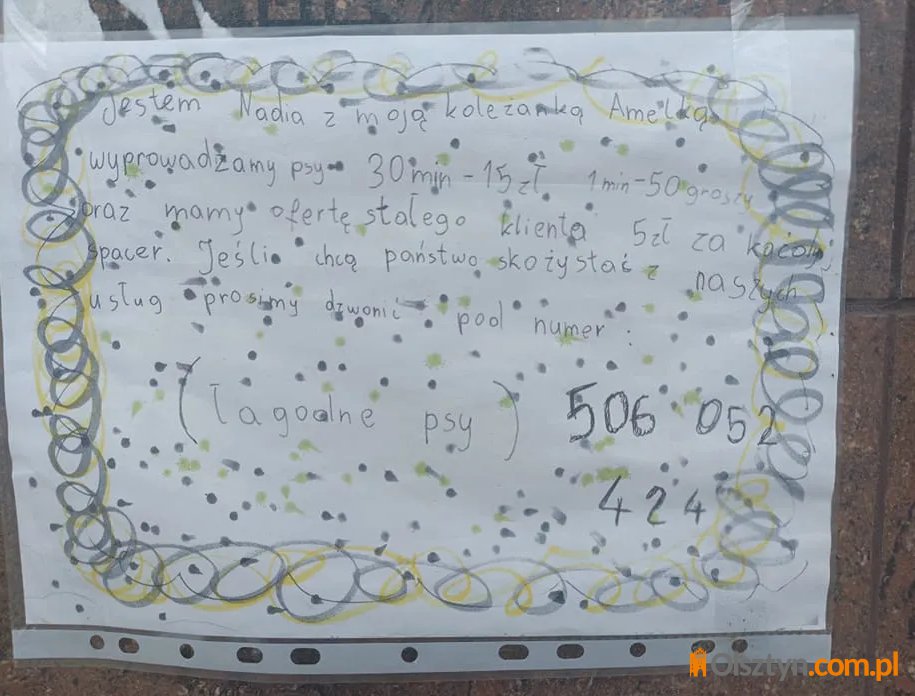 Jestem Nadia z moją koleżanką Amelką
wyprowadzamy psy 30 min - 15 zł 1 min - 50 groszy
oraz mamy ofertę stałego klienta 5 zł za każdy
spacer. Jeśli chcą państwo skożystać z naszych
usług prosimy dzwonić pod numer:
(łagodne psy) 506 052
424
Olsztyn.com.pl